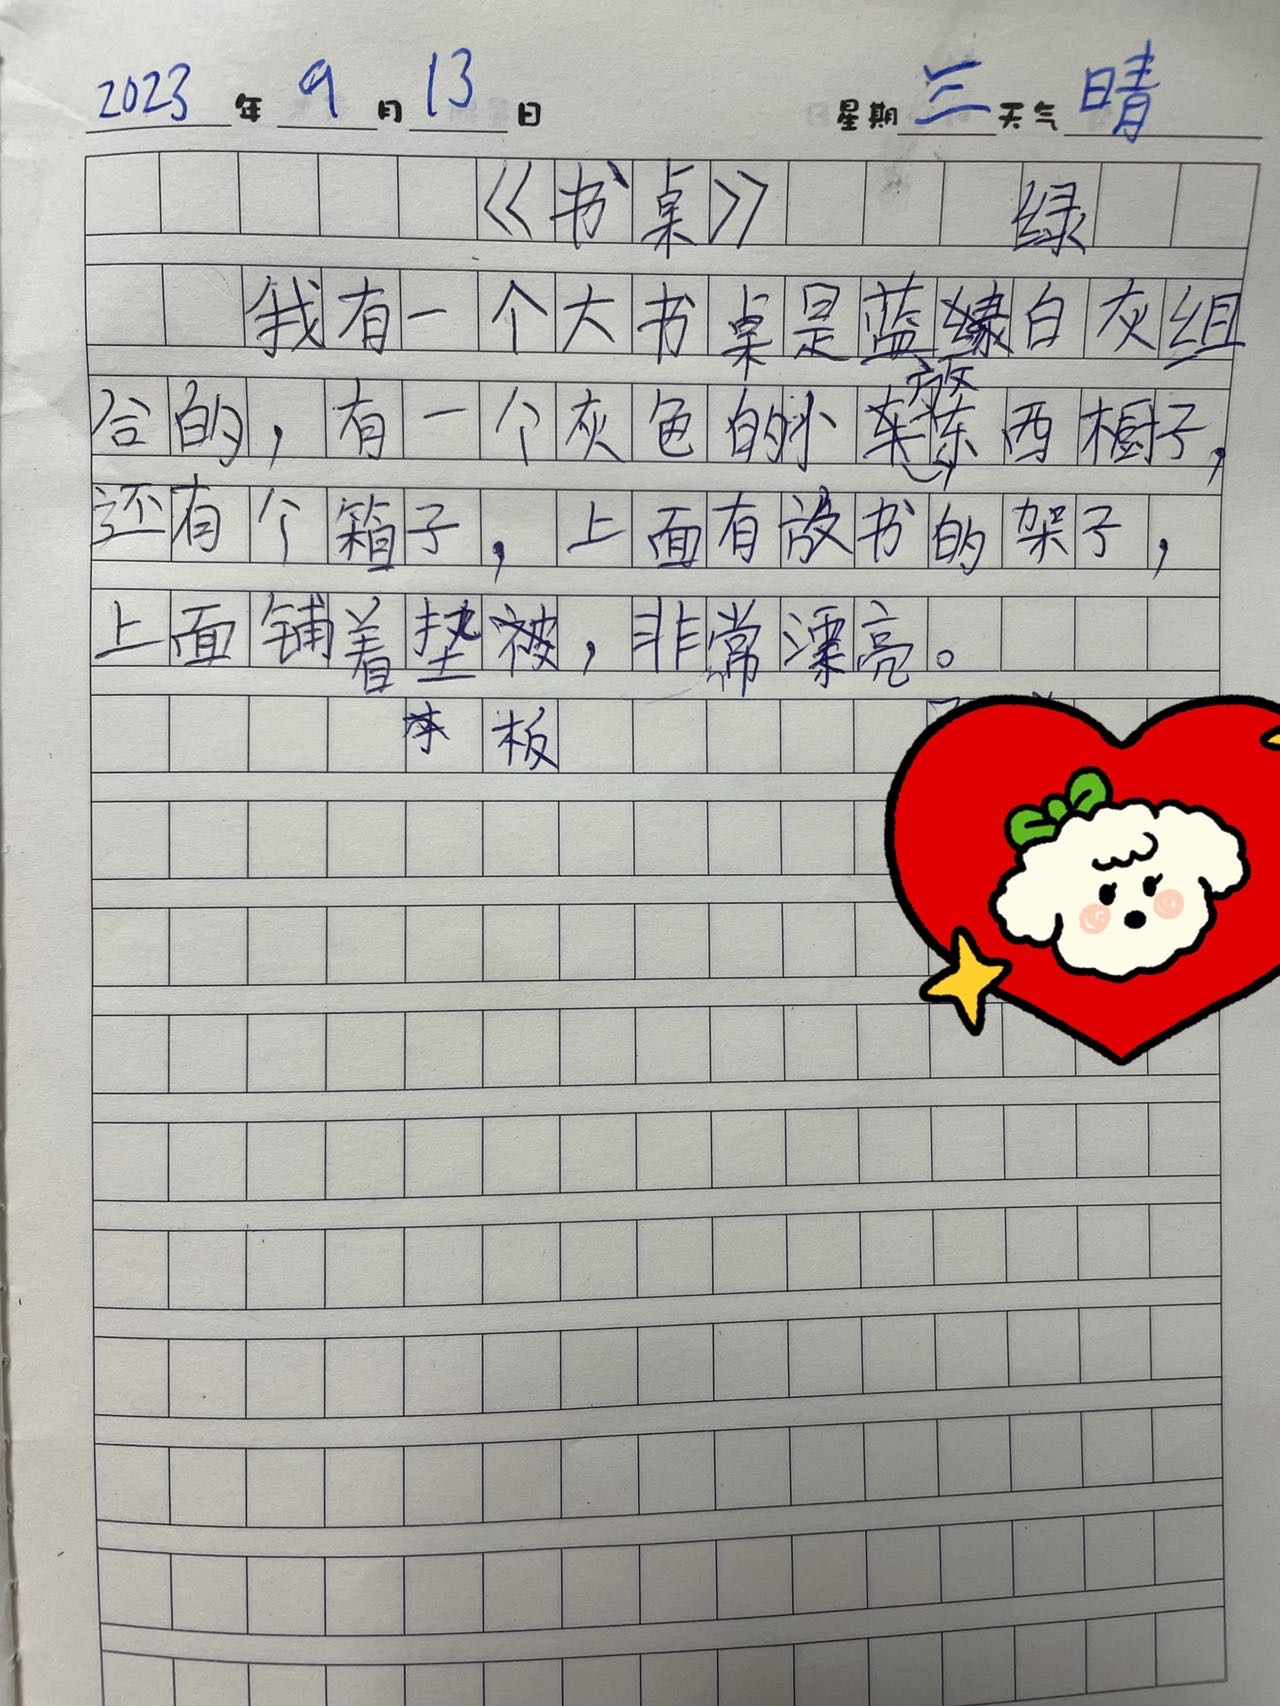 2023年9月13日 星期三天气晴
《书桌》 绿
我有一个大书桌是蓝绿白灰组
放
合的，有一个灰色的小车东西橱子，
还有个箱子，上面有放书的架子，
上面铺着垫被，非常漂亮。
木板